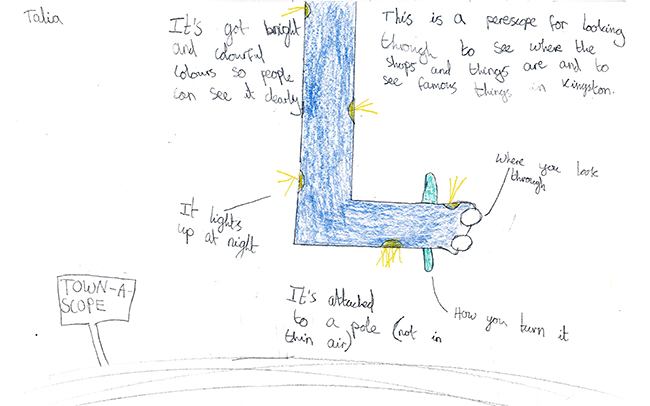 Talia
It's got bright
and colourful
colours so people
can see it clearly
This is a perescope for looking
through to see where the
shops and things are and to
see famous things in Kingston.
Where you look
through
It lights
up at night
TOWN-A-
SCOPE
It's attached
to a pole (not in
thin air)
How you turn it